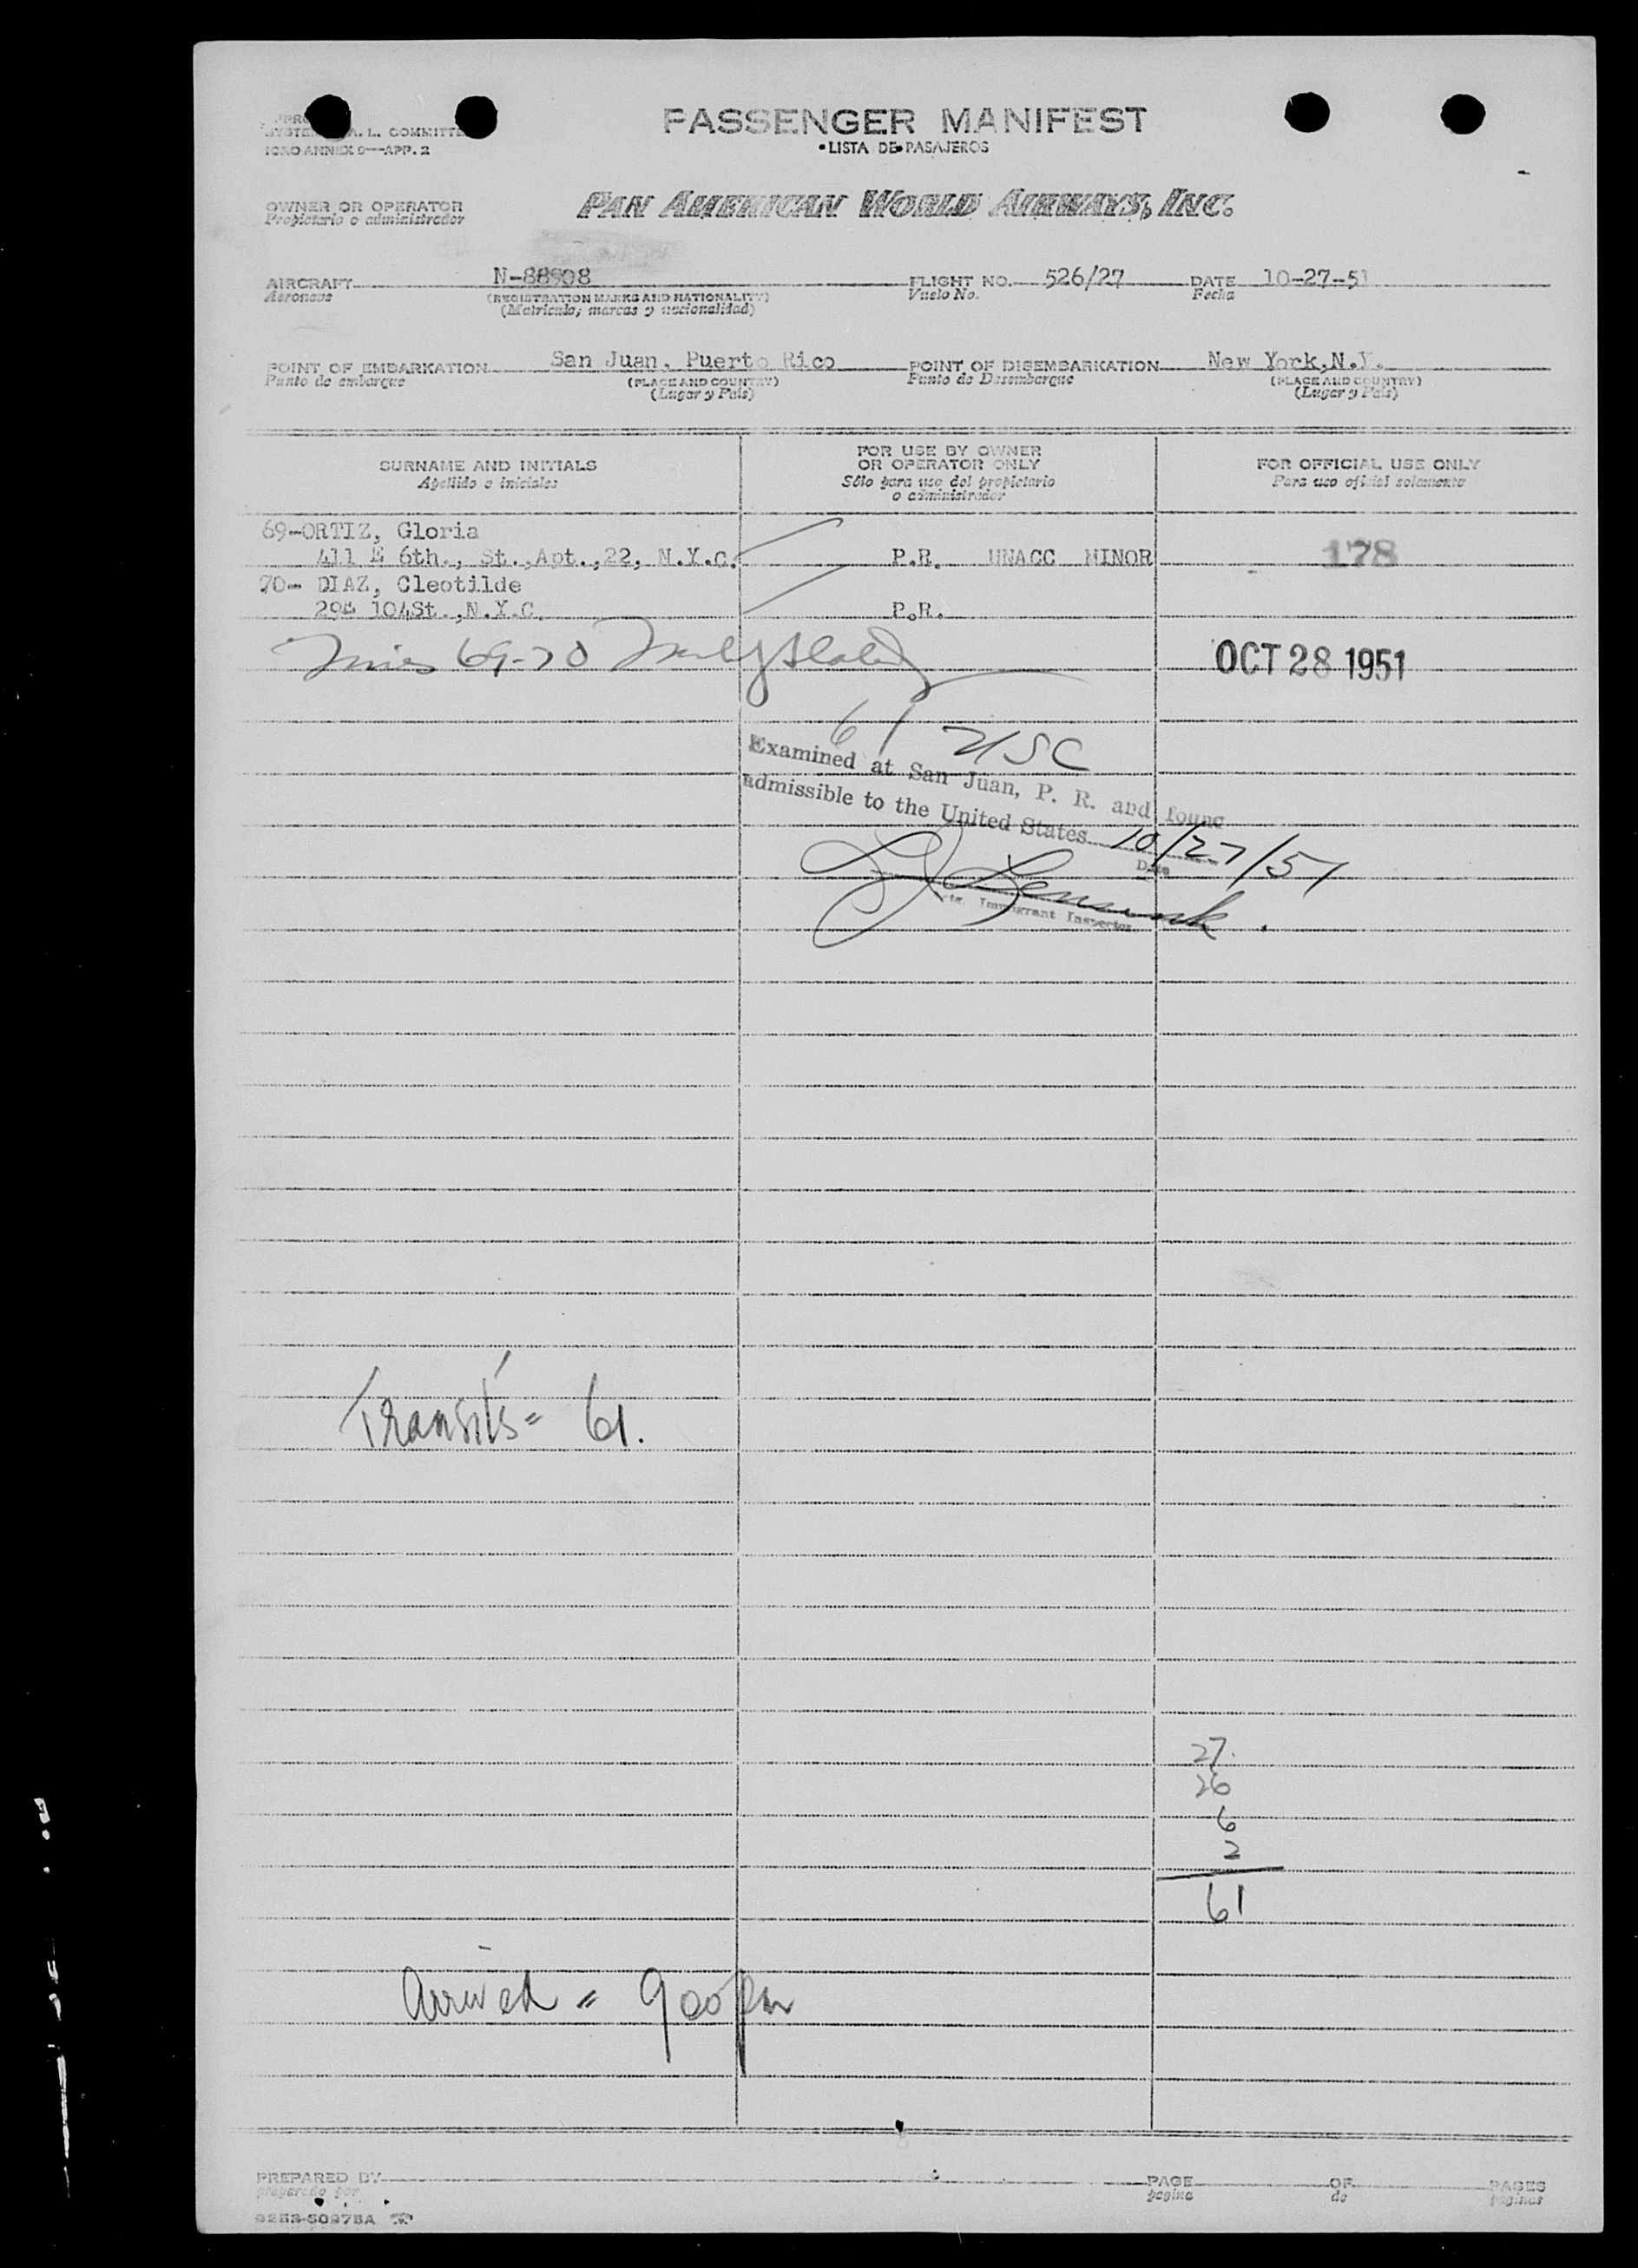 PASSENGER MANIFEST
L. COMMITTE
LISTA DE PASAJEROS
ICAO ANNEX 9—APP. 2
OWNER OR OPERATOR
Propietario o administrador
PAN AMERICAN WORLD AIRWAYS, INC.
AIRCRAFT N-88908 FLIGHT NO. 526/27 DATE 10-27-51
Aeronave (REGISTRATION MARKS AND NATIONALITY) Vuelo No. Fecha
(Matricula, marcas y nacionalidad)
POINT OF EMBARKATION San Juan, Puerto Rico POINT OF DISEMBARKATION New York,N.Y.
Punto de embarque (PLACE AND COUNTRY) Punto de Desembarque (PLACE AND COUNTRY)
(Lugar y País) (Lugar y País)
SURNAME AND INITIALS
Apellido e iniciales
FOR USE BY OWNER
OR OPERATOR ONLY
Sólo para uso del propietario
o administrador
FOR OFFICIAL USE ONLY
Para uso oficial solamente
69-ORTIZ, Gloria
411 E 6th., St.,Apt.,22, N.Y.C. P.R. UNACC MINOR 178
70- DIAZ, Cleotilde
104St.,N.Y.C. P.R.
69-70
OCT 28 1951
61 USC
Examined at San Juan, P. R. and found
admissible to the United States 10/27/51
Date
Immigrant Inspector
Transits = 61.
27
26
6
2
61
Arrived = 900 pm
PREPARED BY PAGE OF PAGES
preparado por pagina de paginas